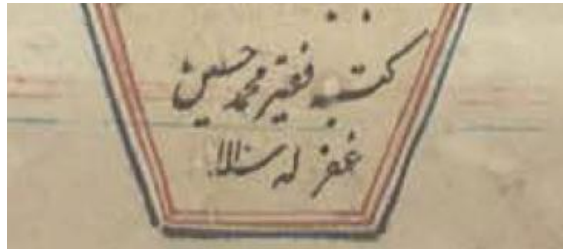 كتبه فقير محمد حسين
غفر له